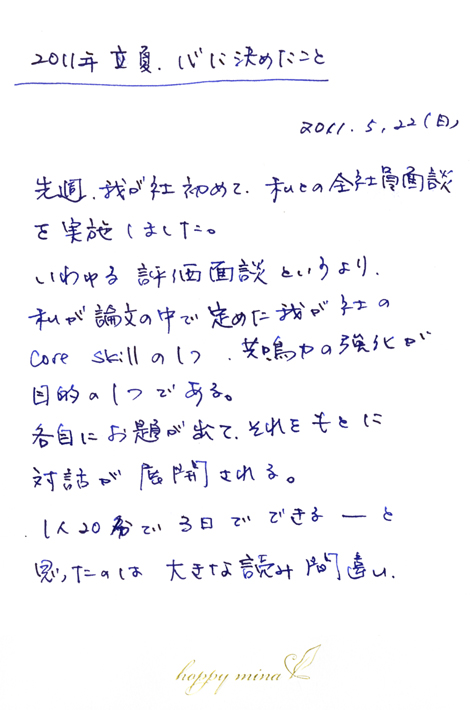 2011年 立夏、心に決めたこと
2011.5.22(日)
先週、我が社初めて、私との全社員面談
を実施しました。
いわゆる評価面談というより、
私が論文の中で定めた我が社の
core skillの1つ、共鳴力の強化が
目的の1つである。
各自にお題が出て、それをもとに
対話が展開される。
1人20分で3日でできる ― と
思ったのは大きな読み間違い、
happy mina